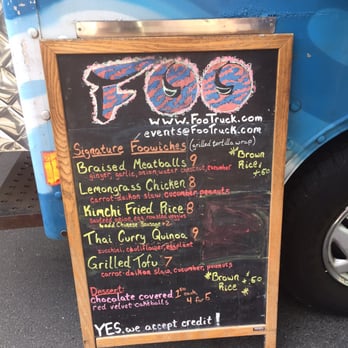 FOO
www.FooTruck.com
events@FooTruck.com
Signature Foowiches (grilled tortilla wrap)
Braised Meatballs 9
ginger, garlic, onion, water chestnut, cucumber
* Brown Rice, +.50
Lemongrass Chicken 8
carrot-daikon slaw, cucumber, peanuts
Kimchi Fried Rice 8
egg, roasted veggies
add Chinese Sausage
Thai Curry Quinoa 9
zucchini, cauliflower, eggplant
Grilled Tofu 7
carrot-daikon slaw, cucumber, peanuts
* Brown Rice * +.50
Dessert:
chocolate covered
red velvet cakeballs
4 for 5
YES, we accept credit!